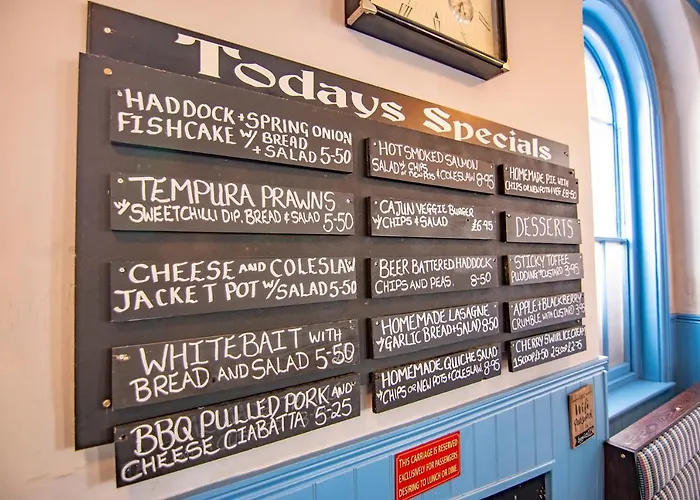 Todays Specials
HADDOCK + SPRING ONION
FISHCAKE W/ BREAD
+ SALAD 5-50
TEMPURA PRAWNS
W/ SWEETCHILLI DIP, BREAD & SALAD 5-50
CHEESE AND COLESLAW
JACKET POT W/ SALAD 5-50
WHITEBAIT WITH
BREAD AND SALAD 5-50
BBQ PULLED PORK AND
CHEESE CIABATTA 5-25
HOT SMOKED SALMON
SALAD W/ CHIPS
OR NEW POTS & COLESLAW 8-95
CAJUN VEGGIE BURGER
W/ CHIPS & SALAD £6.95
BEER BATTERED HADDOCK
CHIPS AND PEAS. 8-50
HOMEMADE LASAGNE
W/ GARLIC BREAD + SALAD 8-50
HOMEMADE QUICHE SALAD
W/ CHIPS OR NEW POTS & COLESLAW 8-95
HOMEMADE PIE WITH
CHIPS OR NEW POT & VEG £8-50
DESSERTS
STICKY TOFFEE
PUDDING W/ CUSTARD 3-95
APPLE & BLACKBERRY
CRUMBLE WITH CUSTARD 3-95
CHERRY SWIRL ICE
1 SCOOP £1-50 2 SCOOP 2-75
THIS CARRIAGE IS RESERVED
EXCLUSIVELY FOR PASSENGERS
DESIRING TO LUNCH OR DINE
Wifi